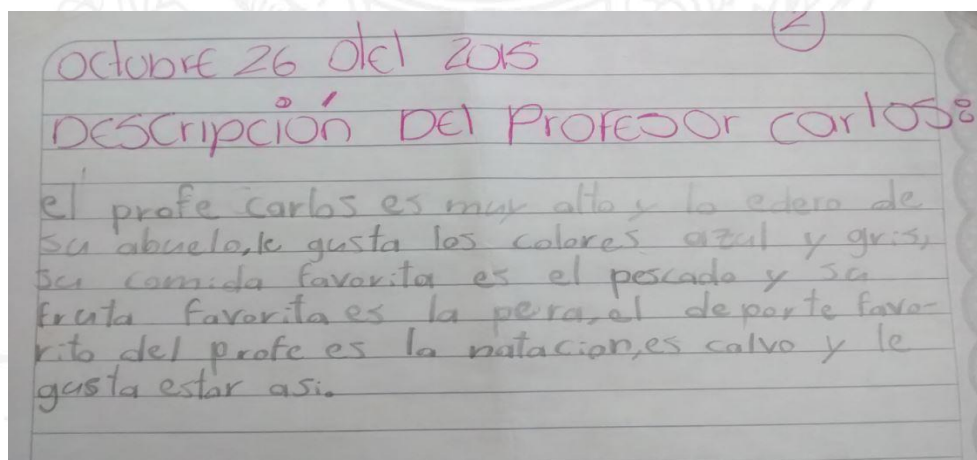 2
octubre 26 del 2015
Descripción Del Profesor carlos:
el profe carlos es muy alto y lo edero de
su abuelo, le gusta los colores azul y gris,
su comida favorita es el pescado y su
fruta favorita es la pera, el deporte favo-
rito del profe es la natacion, es calvo y le
gusta estar asi.